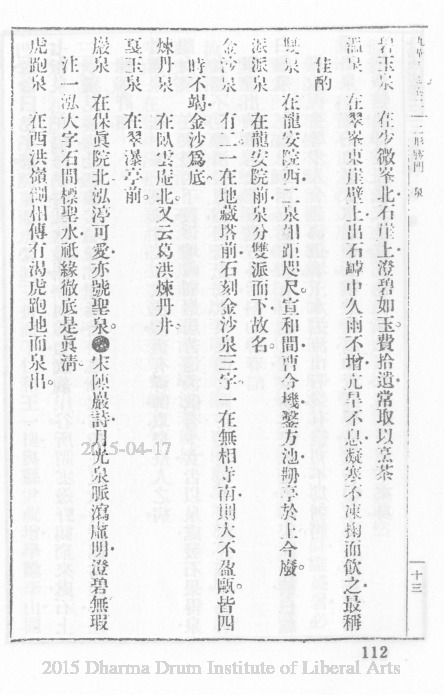 九華山志卷二 二形勝門 泉
碧玉泉 在少微峯北石崖上澄碧如玉。費拾遺常取以烹茶
溫泉 在翠峯東崖壁上出石罅中久雨不增亢旱不息凝寒不凍掬而飲之最稱
佳酌
雙泉 在龍安院西二泉相距咫尺。宣和間曹令機鑿方池剙亭於上今廢。
派派泉 在龍安院前泉分雙派而下故名。
金沙泉 有二一在地藏塔前石刻金沙泉三字。一在無相寺南則大不盈甌皆四
時不竭金沙爲底。
煉丹泉 在臥雲庵北。又云葛洪煉丹井。
戞玉泉 在翠瀑亭前。
巖泉 在保眞院北泓渟可愛亦號聖泉。宋陳巖詩月光泉脈瀉虛明澄碧無瑕
注一泓大字石間標聖水祇緣徹底是眞淸。
虎跑泉 在西洪嶺側相傳有渴虎跑地而泉出。
十三
112
2015-04-17
2015 Dharma Drum Institute of Liberal Arts